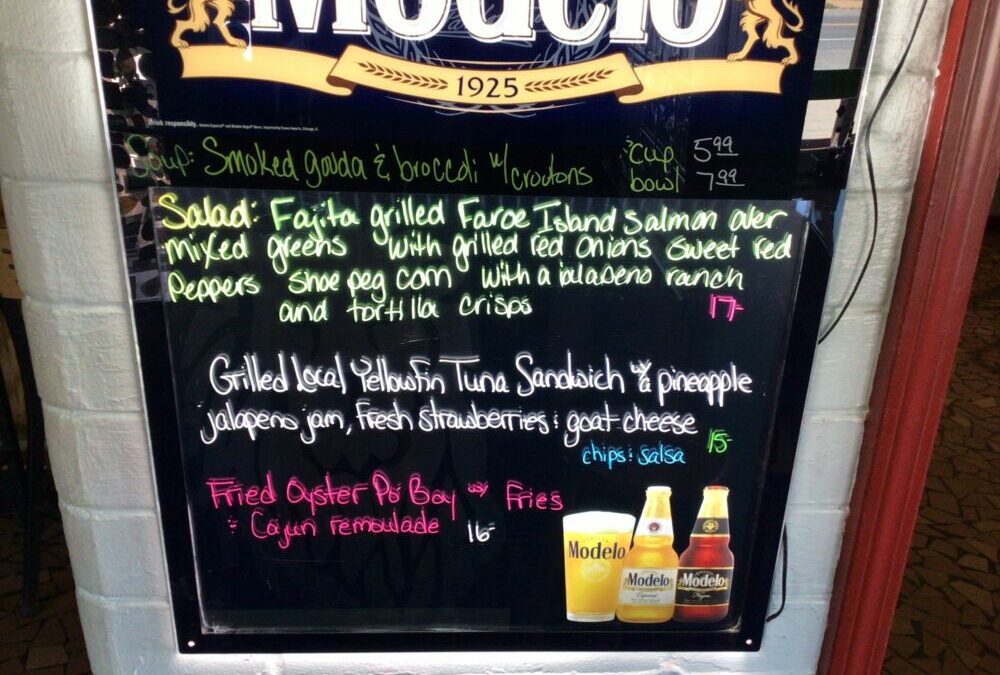 Modelo
1925
drink responsibly.
Soup: Smoked gouda & broccoli w/ croutons cup 5.99
bowl 7.99
Salad: Fajita grilled Faroe Island Salmon over
mixed greens with grilled red onions sweet red
peppers shoe peg corn with a jalapeno ranch
and tortilla crisps 17-
Grilled Local Yellowfin Tuna Sandwich w/ a pineapple
jalapeno jam, fresh strawberries & goat cheese 15-
chips & salsa
Fried Oyster Po Boy w/ Fries
& Cajun remoulade 16-
Modelo
Modelo
Especial
Modelo
Negra